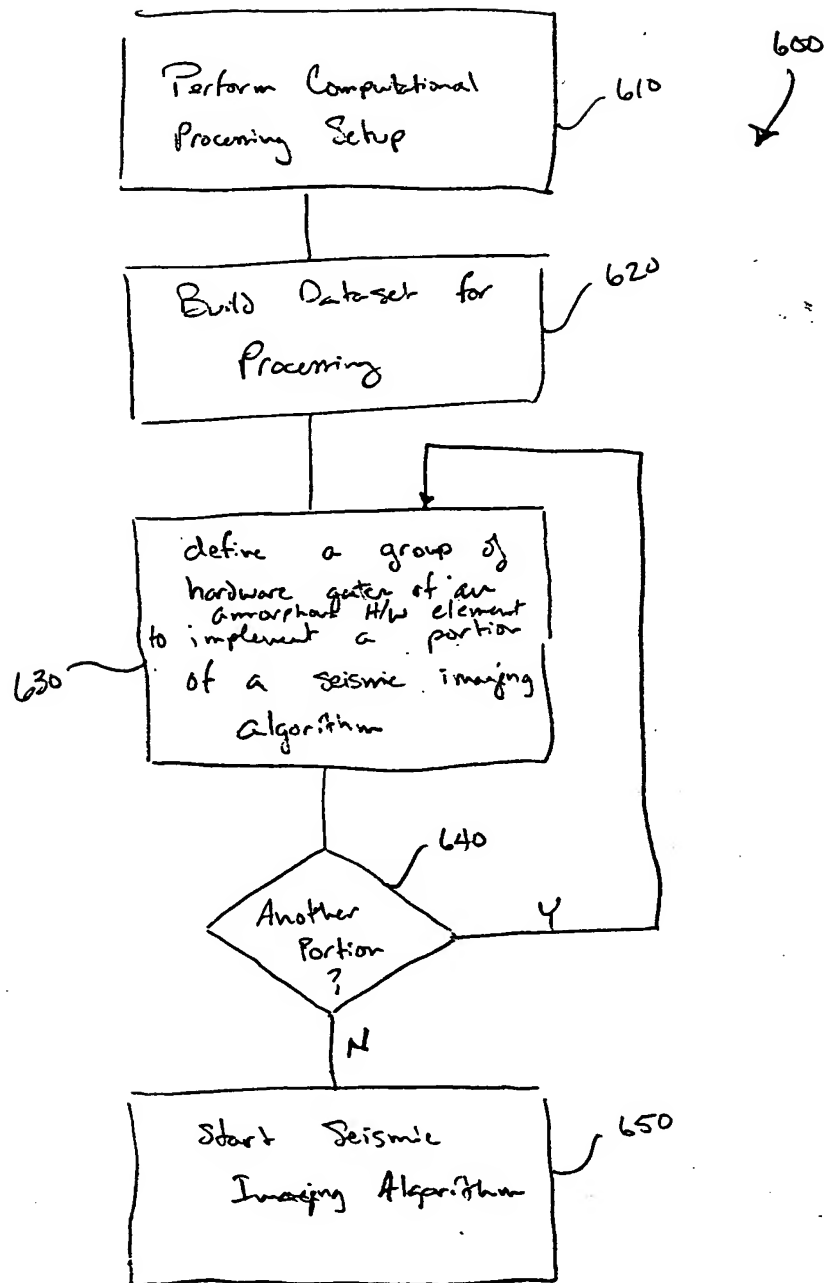 600
Perform Computational
Processing Setup
610
Build Dataset for
Processing
620
define a group of
hardware gates of an
amorphous H/W element
to implement a portion
of a seismic imaging
algorithm
630
640
Another
Portion
?
Y
N
Start Seismic
Imaging Algorithm
650